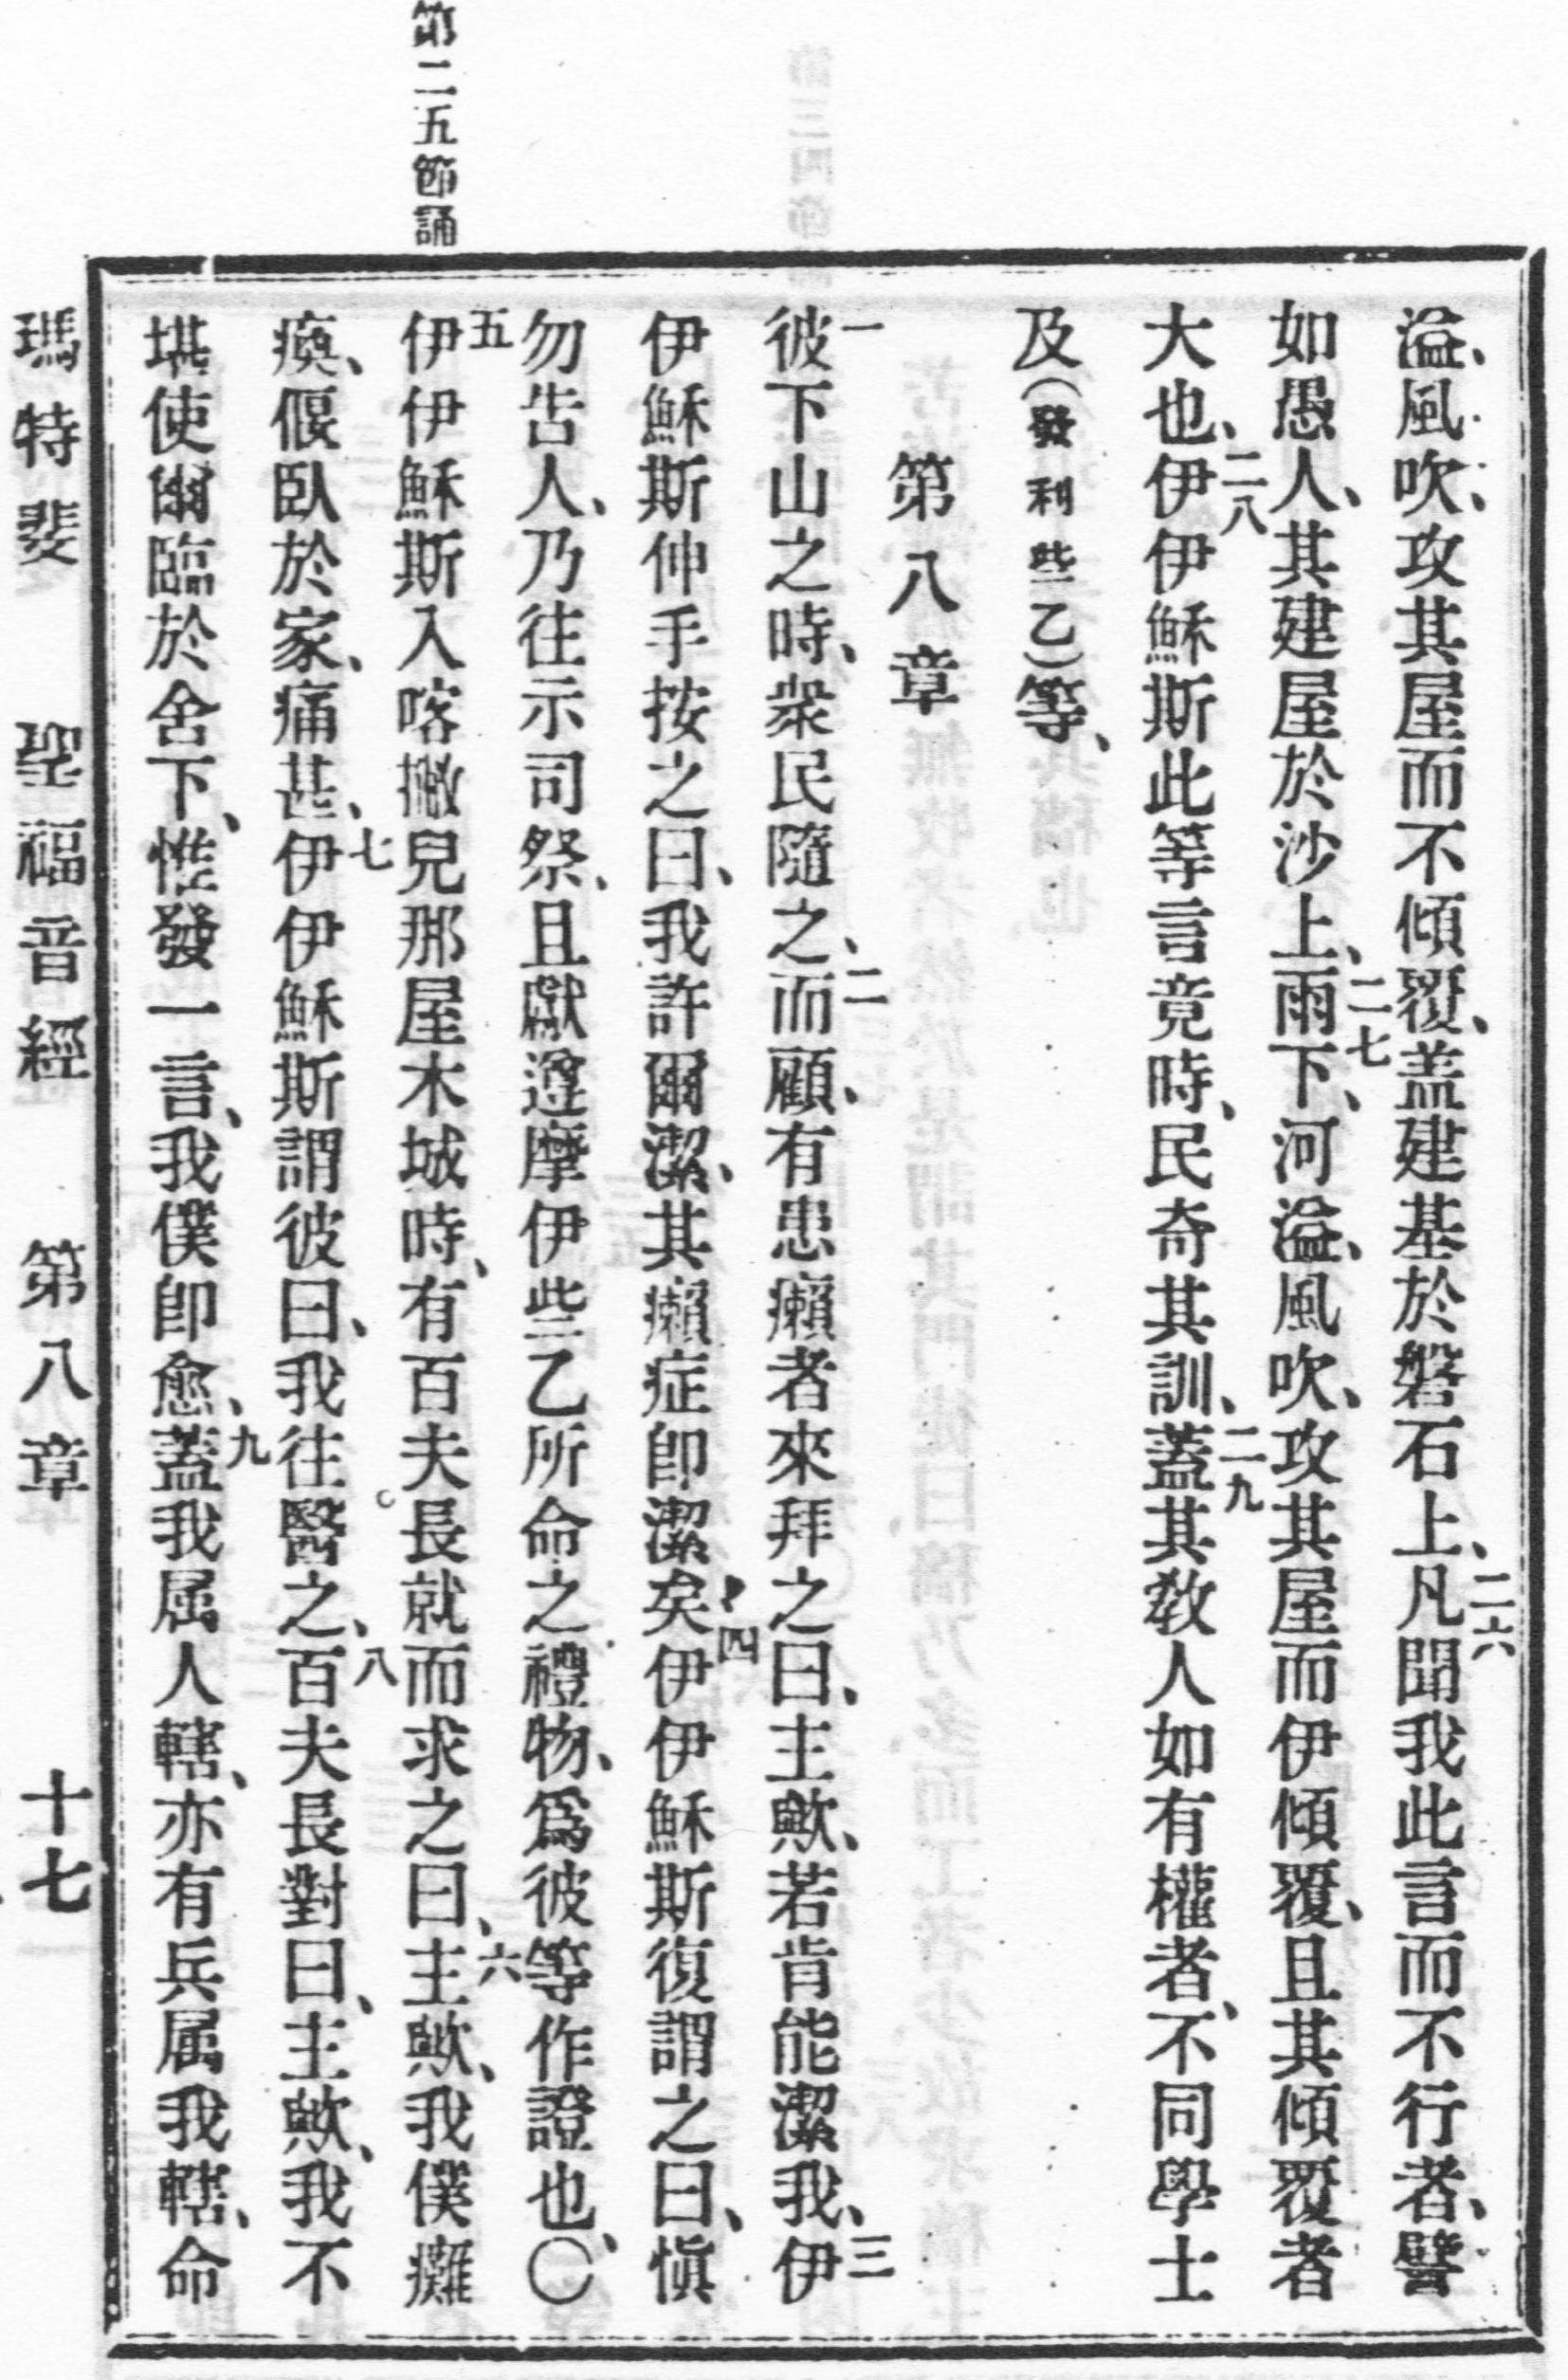 溢、風吹、攻其屋而不傾覆、盖建基於磐石上、二六凡聞我此言而不行者、譬
如愚人、其建屋於沙上、二七雨下、河溢、風吹、攻其屋而伊傾覆、且其傾覆者
大也、二八伊伊穌斯此等言竟時、民奇其訓、二九蓋其敎人如有權者、不同學士
及(發利些乙)等、
第八章
一彼下山之時、衆民隨之、二而顧、有患癩者來拜之曰、主歟、若肯能潔我、三伊
伊穌斯伸手按之曰、我許爾潔、其癩症卽潔矣、四伊伊穌斯復謂之曰、愼
勿告人、乃往示司祭、且獻遵摩伊些乙所命之禮物、爲彼等作證也、〇
五伊伊穌斯入喀撇兒那屋木城時、有百夫長就而求之曰、六主歟、我僕癱
瘓、偃臥於家、痛甚、七伊伊穌斯謂彼曰、我往醫之、八百夫長對曰、主歟、我不
堪使爾臨於舍下、惟發一言、我僕卽愈、九蓋我屬人轄、亦有兵属我轄、命
第二五節誦
瑪特斐 聖福音經 第八章 十七